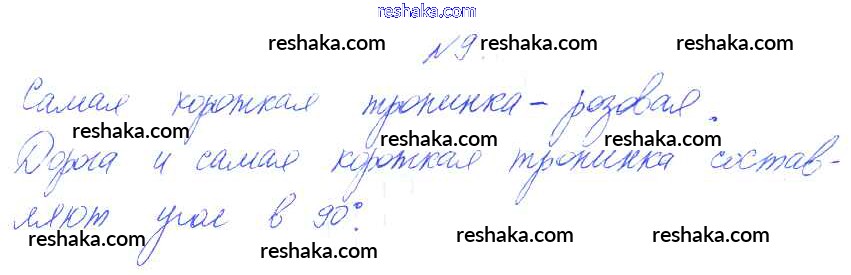 reshaka.com
reshaka.com reshaka.com №9. reshaka.com
Самая короткая тропинка – розовая.
reshaka.com reshaka.com reshaka.com
Дорога и самая короткая тропинка состав-
ляют угол в 90°.
reshaka.com reshaka.com reshaka.com reshaka.com